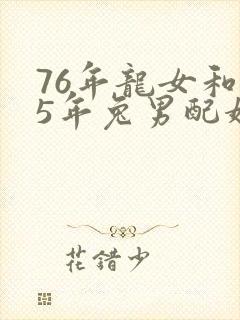 76年龍女和
5年兔男配
花錯少